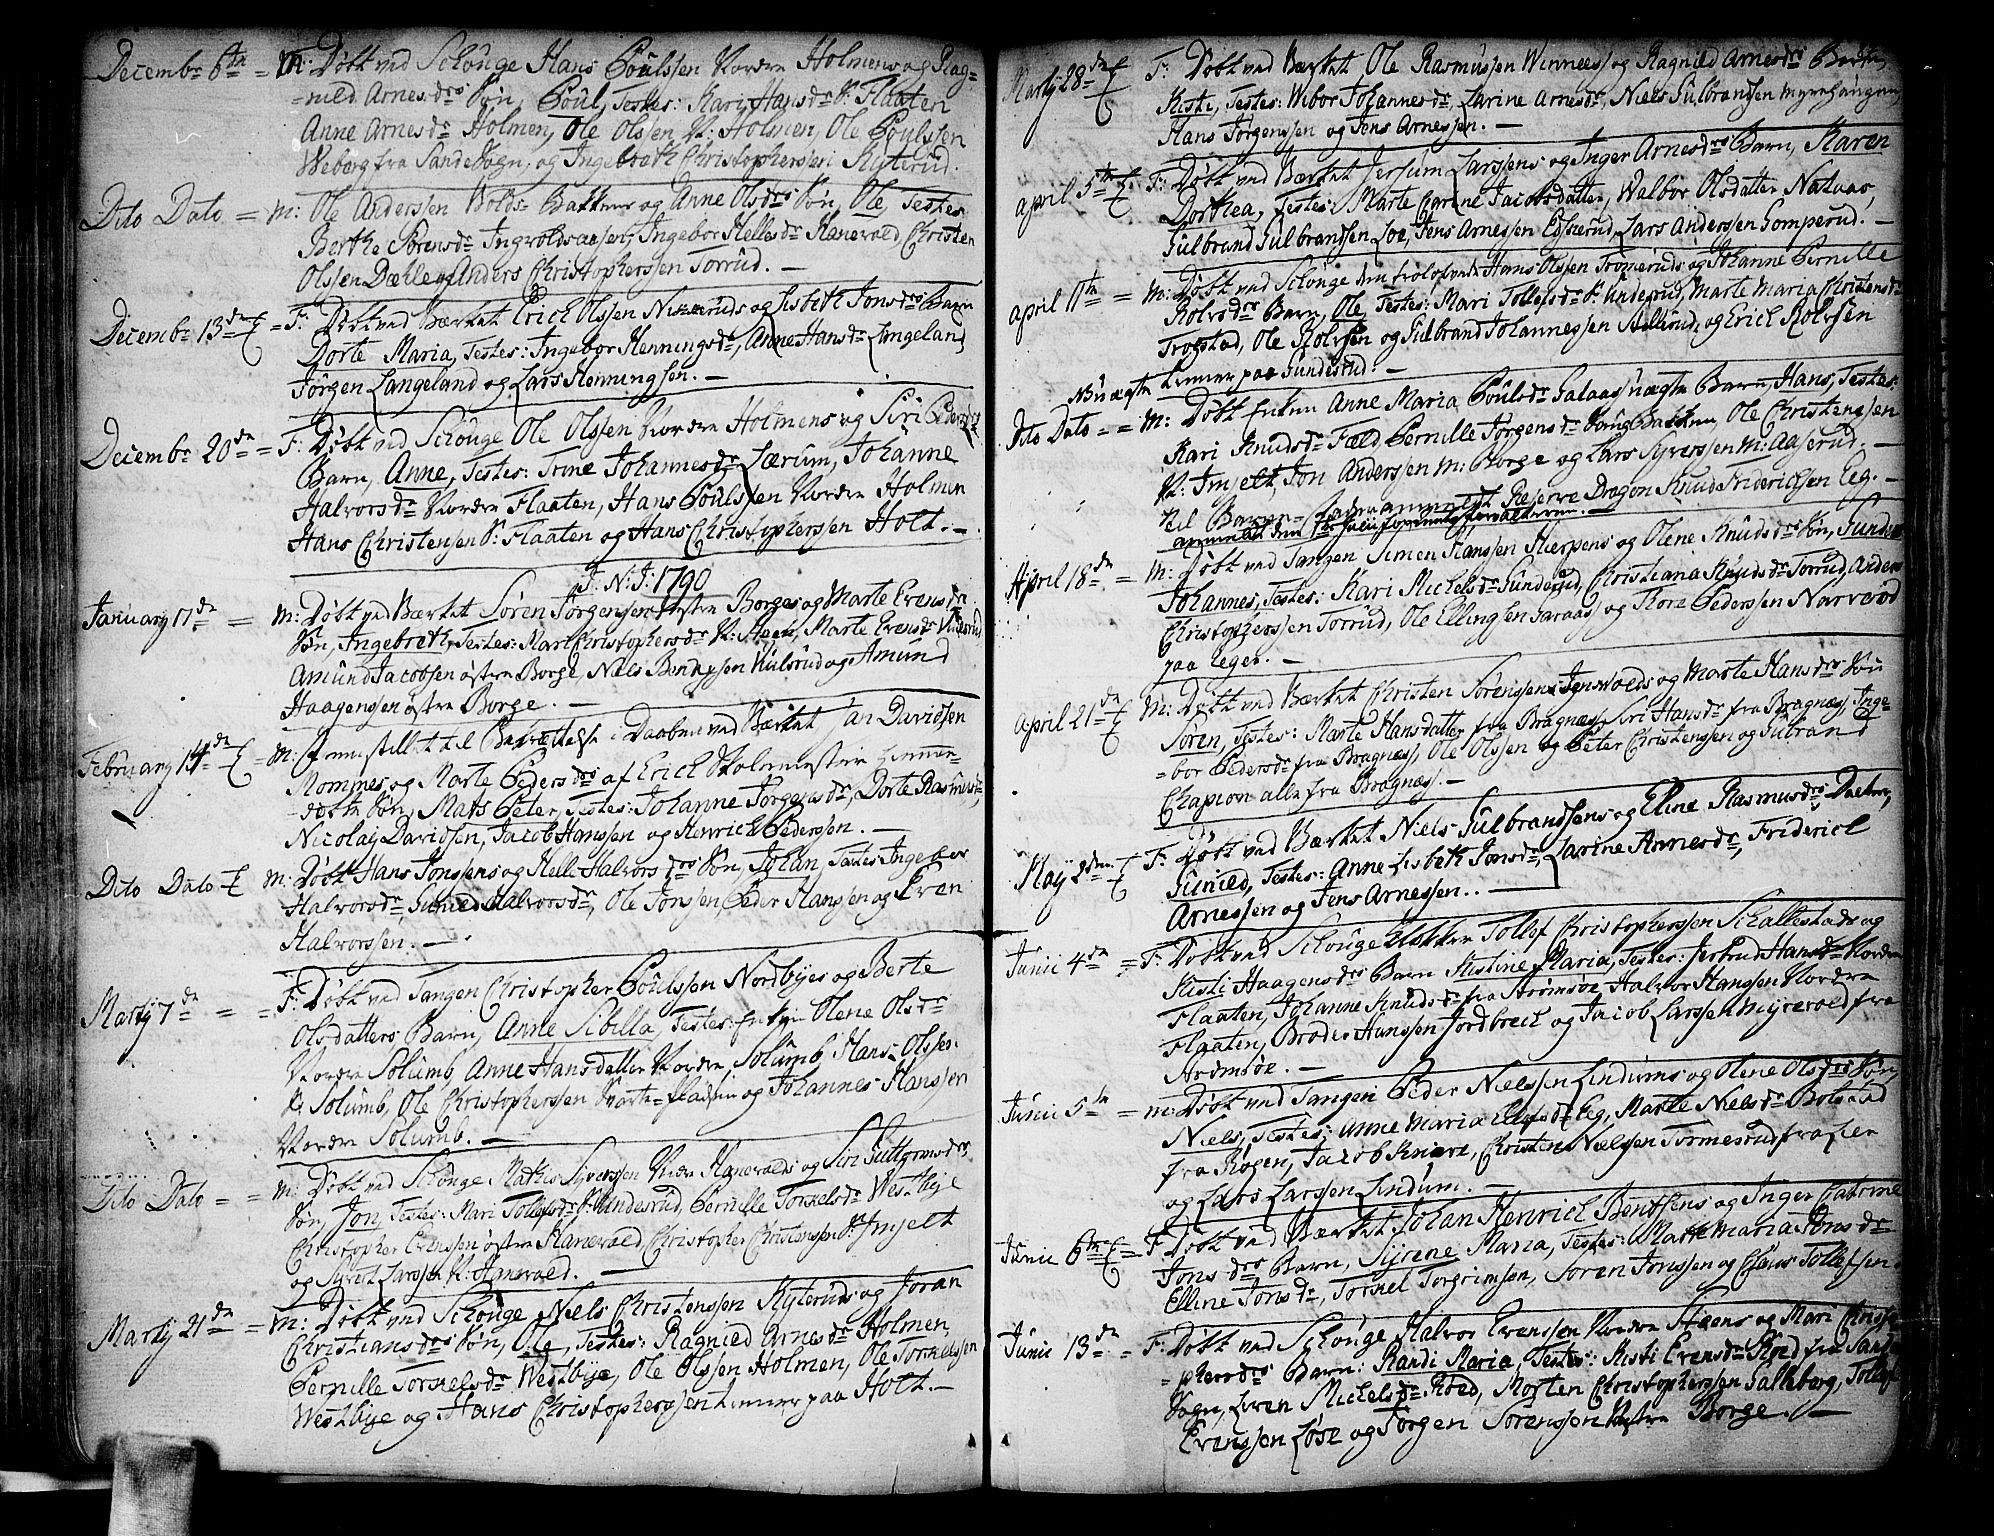 Decembr 6te = M: Døbt ved Schouge Hans Poulssen Nordre Holmens og Rag-
=nild Arnesdrs Søn, Poul, Testes: Kari Hansdr S: Flaaten
Anne Arnesdr Holmen, Ole Olssen N: Holmen, Ole Poulssen
Weborg fra Sande Sogn, og Ingebreth Christopherssen Kyterud.
Dito Dato = M: Ole Anderssen Wolds Bakken og Anne Olsdrs Søn, Ole Testes
Berthe Sørensdr Ingvoldsaasen, Ingebor Hellesdr Hanevold, Christen
Olssen Dæhle og Anders Christopherssen Torrud. —
Decembr 13de E = F: Døbt ved Værket Erich Olssen og Lisbeth Jonsdrs Barn
Dorte Maria, Testes: Ingebor Henningsdr, Anne Hansdr Langeland
Jørgen Langeland og Lars Henningsen. —
Decembr 20de = F: Døbt ved Schouge Ole Olssen Nordre Holmens og Siri Pedersdr
Barn, Anne, Testes: Trine Johannesdr Lærum, Johanne
Halvorsdr Nordre Flaaten, Hans Poulssen Nordre Holmen
Hans Christensen S: Flaaten og Hans Christopherssen Holt. —
J: N: J: 1790
January 17de = M: Døbt ved Værket Søren Jørgensen østre Borges og Marte Evensdr
Søn, Ingebreth, Testes: Mari Christophersdr N: Marte Evensdr
Amund Jacobsen østre Borge, Niels Hulsrud og Amund
Haagensen østre Borge. —
February 14de E = M: Fremstillet til Daaben ved Værket Jan Davidsen
Mommes og Marte Pedersdrs af Erich Skolemester hiemme-
døbte Søn, Mats Peter, Testes: Johanne Jørgensdr, Dorte Rasmusdr,
Nicolay Davidsen, Jacob Hanssen og Henrich Pederssen. —
Dito Dato E M: Døbt Hans Jonssens og Helle Halvorsdrs Søn, Johan, Testes: Ingebor
Halvorsdr Gunild Halvorsdr, Ole Jonsen, Peder Hanssen og Even
Halvorssen. —
Martij 7de = = F: Døbt ved Tangen Christopher Poulssen Nordbyes og Berte
Olsdatters Barn, Anne Sibilla, Testes: Olene Olsdr
Nordre Solumb, Anne Hansdatter Nordre Solumb, Hans Olssen
S: Solumb, Ole Christopherssen Svarte=Pladsen og Johannes Hanssen
Nordre Solumb. —
Dito Dato = = M: Døbt ved Schouge Mathis Syverssen Nedre Hanevolds og Siri Guttormsdrs
Søn, Jon, Testes: Mari Tollefsdr S: Sunderud, Pernille Torkelsdr Westbye
Christopher Evenssen østre Hanevold, Christopher Christenssen S: Imjelt
og Syvert Larssen N: Hanevold. —
Martij 21de = M: Døbt ved Schouge Niels Christenssen Kyteruds og Joran
Christiansdrs Søn, Ole, Testes: Ragnild Arnesdr Holmen,
Pernille Torkelsdr Westbye, Ole Olssen Holmen, Ole Torkelssen
Westbye og Hans Christopherssen tienner paa Holt. —
Martij 28de E F: Døbt ved Værket Ole Rasmussen Winnees og Ragnild Arnesdrs Barn,
Kisti, Testes: Wibor Johannesdr, Larine Arnesdr, Niels Gulbrandsen Myrehaugen,
Hans Jørgenssen og Jens Arnessen. —
april 5te E F: Døbt ved Værket Larssens og Inger Arnesdrs Barn, Karen
Dorthea, Testes: Marte Carine Jacobsdatter, Walbor Olsdatter Nataas,
Gulbrand Gulbrandsen Loe, Jens Arnessen Edsterud, Lars Anderssen Gomperud. —
april 11te = M: Døbt ved Schouge den trolofvede Hans Olssen Tromeruds og Johanne Pernille
Rolvsdrs Barn, Ole, Testes: Mari Tollefsdr S: Sunderud, Marte Maria Christensdr
Trogstad, Ole Rolvsen og Gulbrand Johannessen Asserud, og Erich Rolvsen
tienner paa Sunderud. —
NB uægte
Dito Dato = = M: Døbt Anne Maria Poulsdr Galaas uægte Barn, Hans, Testes:
Kari Knudsdr Fæld, Pernille Jørgensdr Bakken, Ole Christenssen
N: Imjelt, Jon Anderssen M: Borge og Lars Syverssen M: Aaserud. —
til Barne=fader anmeldt Reserve Dragon Knud Friderichsen Eeg. —
april 18de = M: Døbt ved Tangen Simen Hanssen Skerpens og Olene Knudsdrs Søn,
Johannes, Testes: Kari Michelsdr Sunderud, Christiana Knudsdr Torrud, Anders
Christopherssen Torrud, Ole Ellingsen Garaas og Tore Pederssen Narverød
paa Eeger. —
april 21de E M: Døbt ved Værket Christen Sørenssen og Marte Hansdrs Søn
Søren, Testes: Marte Hansdatter fra Bragnæs, Siri Hansdr fra Bragnæs, Inge=
=bor Pedersdr fra Bragnæs, Ole Olssen og Peter Christenssen og Gulbrand
Chapion alle fra Bragnæs. —
May 2den E F: Døbt ved Værket Niels Gulbrandsens og Eline Rasmusdrs Datter,
Gunild, Testes: Anne Lisbeth Jonsdr, Larine Arnesdr, Friderich
Arnessen og Jens Arnessen. —
Junii 4de = F: Døbt ved Schouge Tollef Christopherssen Schallestads og
Kisti Haagensdrs Barn Kistine Maria, Testes: Jertrud Hansdr Nordre
Flaaten, Johanne Knudsdr fra Strømsøe, Halvor Hanssen Nordre
Flaaten, Broder Hanssen Jordbrek og Jacob Larssen Myrevold fra
Strømsøe. —
Junii 5te = M: Døbt ved Tangen Peder Nielssen Lindums og Olene Olsdrs Søn,
Niels, Testes: Anne Maria Ellefsdr Eeg, Marte Nielsdr Bolstad
fra Røgen, Jacob Knive, Christen Nielssen Tormesrud fra Lier
og Lars Larssen Lindum. —
Junii 6te E = F: Døbt ved Værket Johan Henrich Bentsens og Inger Catrine
Jonsdrs Barn, Syrene Maria, Testes: Marte Maria Jonsdr
Elline Jonsdr, Torkel Torgrimsen, Søren Jonssen og Claus Tollefsen.
Junii 13de = F: Døbt ved Schouge Halvor Evenssen Nordre Haens og Mari Christo-
=phersdrs Barn: Randi Maria, Testes: Kisti Evensdr Røed fra Sande
Sogn, Leven Michelsdr Røed, Morten Christopherssen Galleberg, Tollef
Evenssen Løse og Jørgen Sørenssen Vestre Borge. —